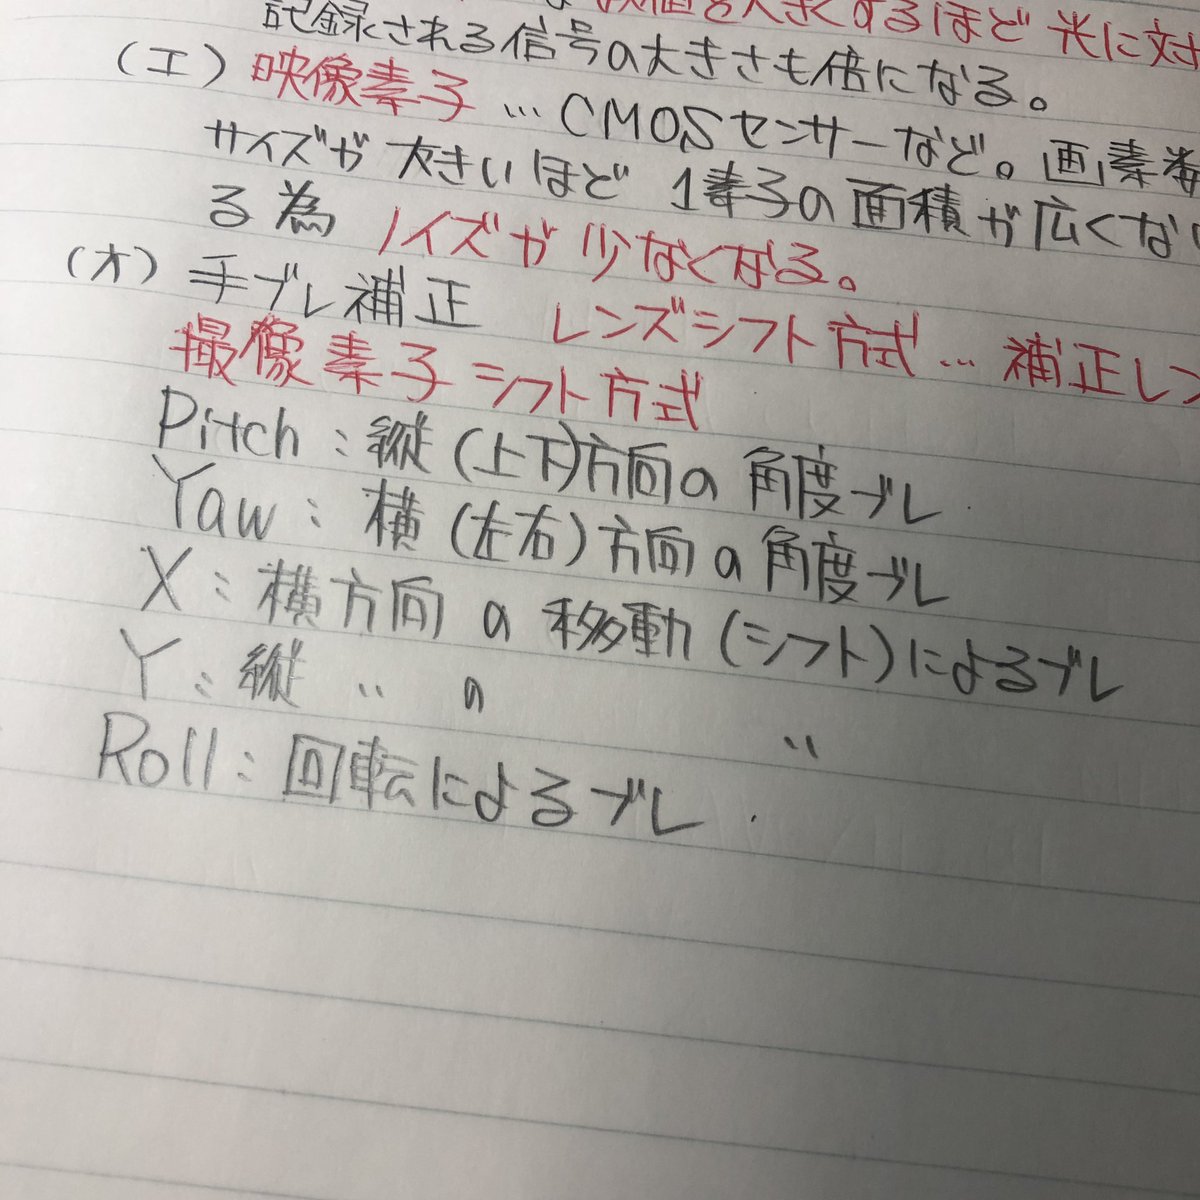 を大きくするほど光に対
記録される信号の大きさも倍になる。
(エ) 映像素子…CMOSセンサーなど。画素数
サイズが大きいほど1素子の面積が広くな
る為ノイズが少なくなる。
(オ) 手ブレ補正 レンズシフト方式…補正レン
撮像素子シフト方式
Pitch:縦(上下)方向の角度ブレ
Yaw:横(左右)方向の角度ブレ
X:横方向の移動(シフト)によるブレ
Y:縦 〃 の 〃
Roll:回転によるブレ.